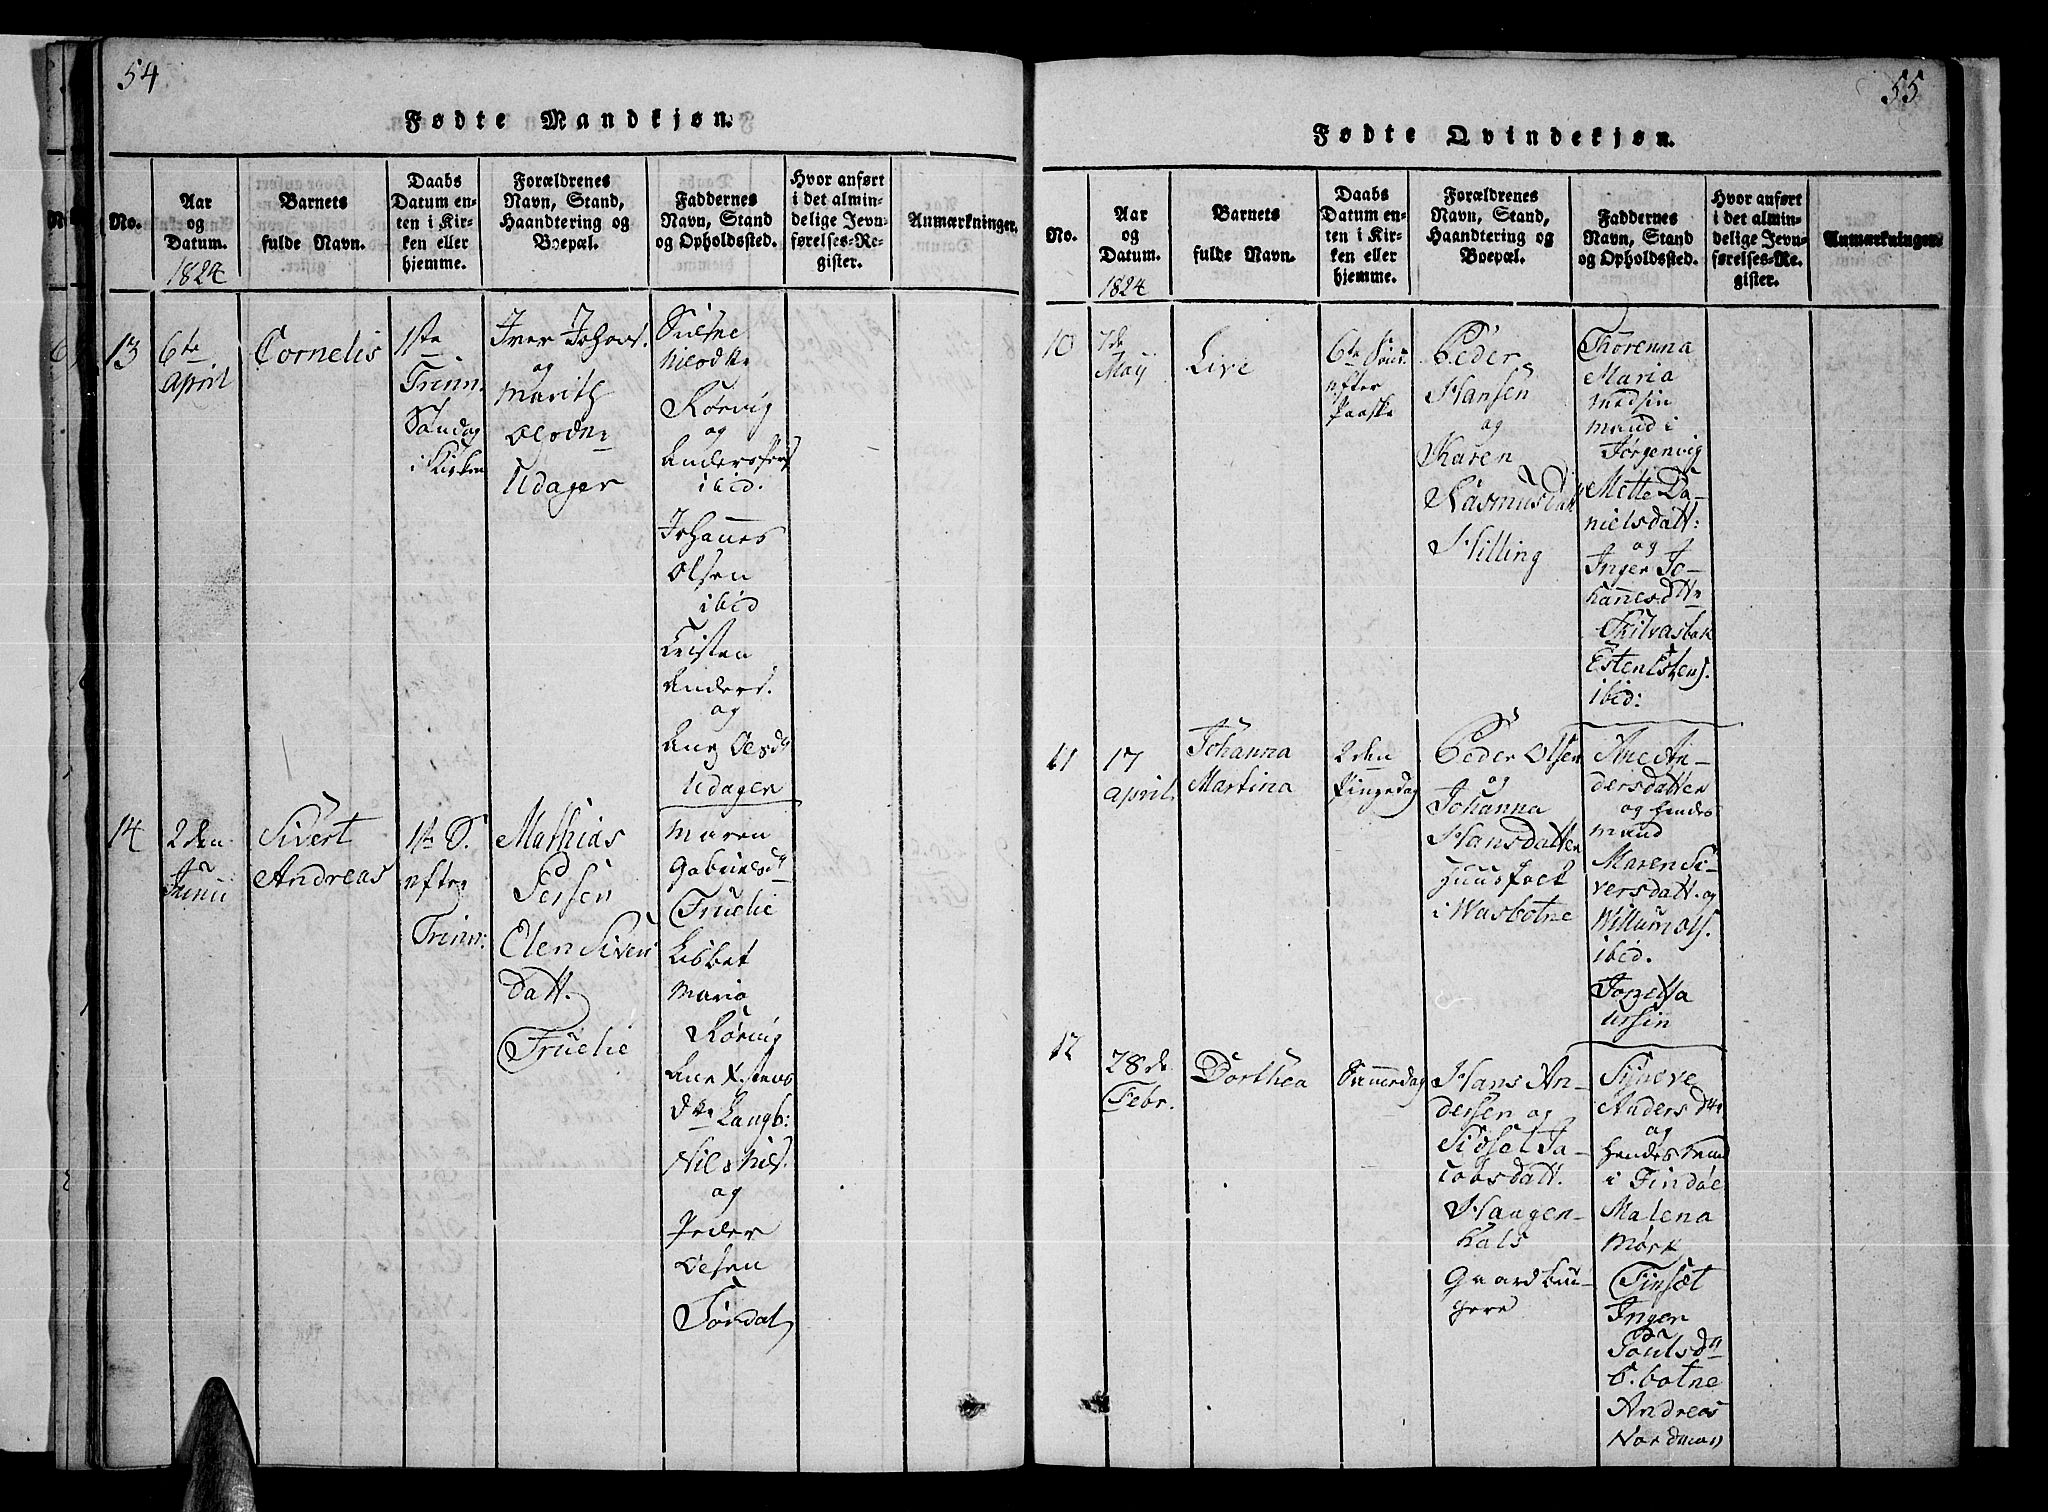 54
Fødte Mandkjøn.
No.
Aar
og
Datum.
1824
Barnets
fulde Navn.
Daabs
Datum en-
ten i Kir-
ken eller
hjemme.
Forældrenes
Navn, Stand,
Haandtering og
Boepæl.
Faddernes
Navn, Stand
og Opholdssted.
Hvor anført
i det almin-
delige Jevn-
førelses-Re-
gister.
Anmærkninger.
13
6te
April
Cornelis
1ste
Trinn.
Søndag
i Kirken
Iver Johans.
og
Marith
Olsdtr
Udager
Rørvig
og
Anders Pers
ibid.
Johannes
Olsen
ibid
Cristen
Anders.
og
Ane Olsdr
Udager
14
2den
Junii
Sivert
Andreas
1ste S.
efter
Trinn:
Mathias
Persen
Elen Sivers
Datt.
Truelie
Maren
Gabrielsdr
Truelie
Lisbet
Maria
Rørvig
Ane Xstens
dtr Langb:
Nils Nils.
og
Peder
Olsen
Tørdal
55
Fødte Qvindekjøn.
No.
Aar
og
Datum.
1824
Barnets
fulde Navn.
Daabs
Datum en-
ten i Kir-
ken eller
hjemme.
Forældrenes
Navn, Stand,
Haandtering og
Boepæl.
Faddernes
Navn, Stand
og Opholdssted.
Hvor anført
i det almin-
delige Jevn-
førelses-Re-
gister.
Anmærkninger.
10
7de
May
Live
6te Sønd.
efter
Paaske
Peder
Hansen
og
Karen
Rasmusdatt
Hilling
Thorenna
Maria
Madsin
mand i
Jørgenvig
Mette Da-
nielsdatt:
og
Inger Jo-
hannesdtr
Skilvasbak
Esten Estens.
ibid:
11
17
April.
Johanna
Martina
2den
Pingsdag
Peder Olsen
og
Johanna
Hansdatter
Huusfolk
i Wasbotne
Ane An-
dersdatter
og hendes
Mand
Maren Si-
versdatt. og
Willum Ols.
ibid.
Jonetta
Ursin
12
28de
Febr.
Dorthea
Hans An-
dersen og
Sidsel Ja-
cobsdatt.
Haugen-
hals
Gaardbru-
gere
Syneve
Anders dtr
og
hendes Mand
i Tindøe
Malena
Mørk
Tinsæt
Inger
Poulsdr
B. botne
Andreas
Nordman